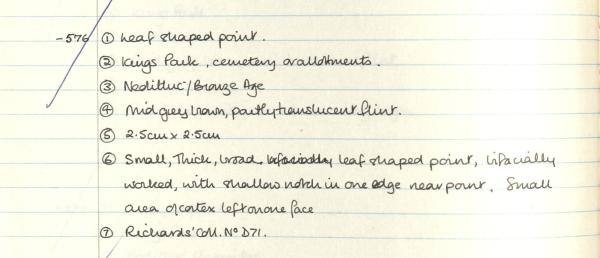 -576 ① Leaf shaped point.
② Kings Park, cemetery or allotments.
③ Neolithic/Bronze Age
④ Mid grey brown, partly translucent flint.
⑤ 2.5cm x 2.5cm
⑥ Small, thick, broad, leaf shaped point, bifacially
worked, with shallow notch in one edge near point. Small
area of cortex left on one face
⑦ Richards' Coll. Nº D71.